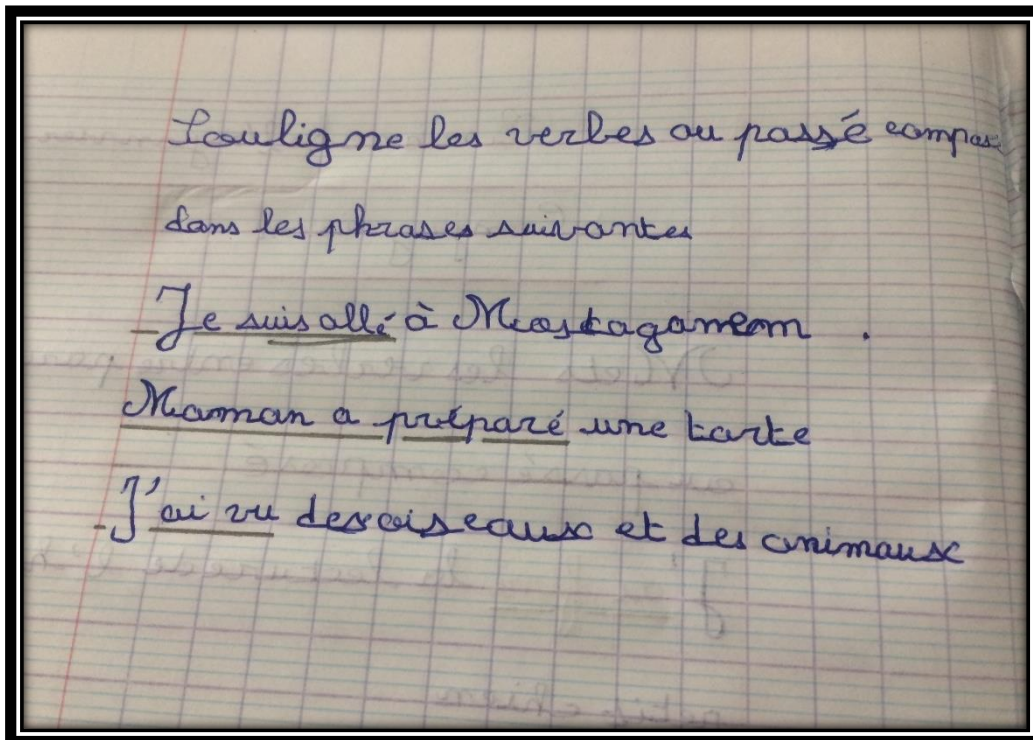 Souligne les verbes au passé compos
dans les phrases suivantes
- Je suis allé à Mostaganem .
Maman a préparé une tarte
- J'ai vu des oiseaux et des animaux